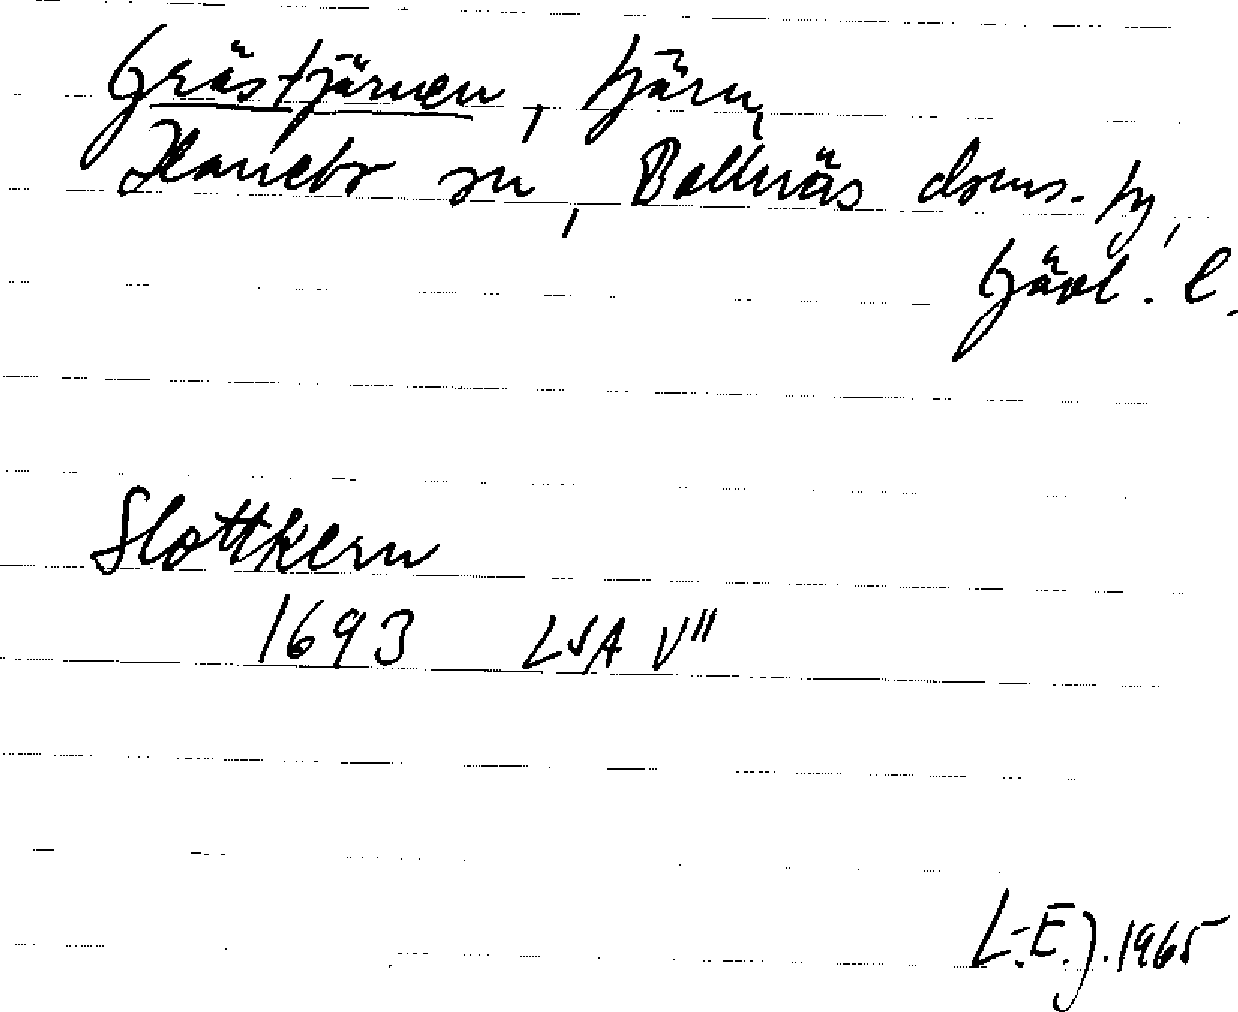 Grästjärnen, tjärn,
Hanebo sn, Bollnäs doms. hy,
Gävl. l.
Slottkern
1693 LSA V"
L.-E.J. 1965